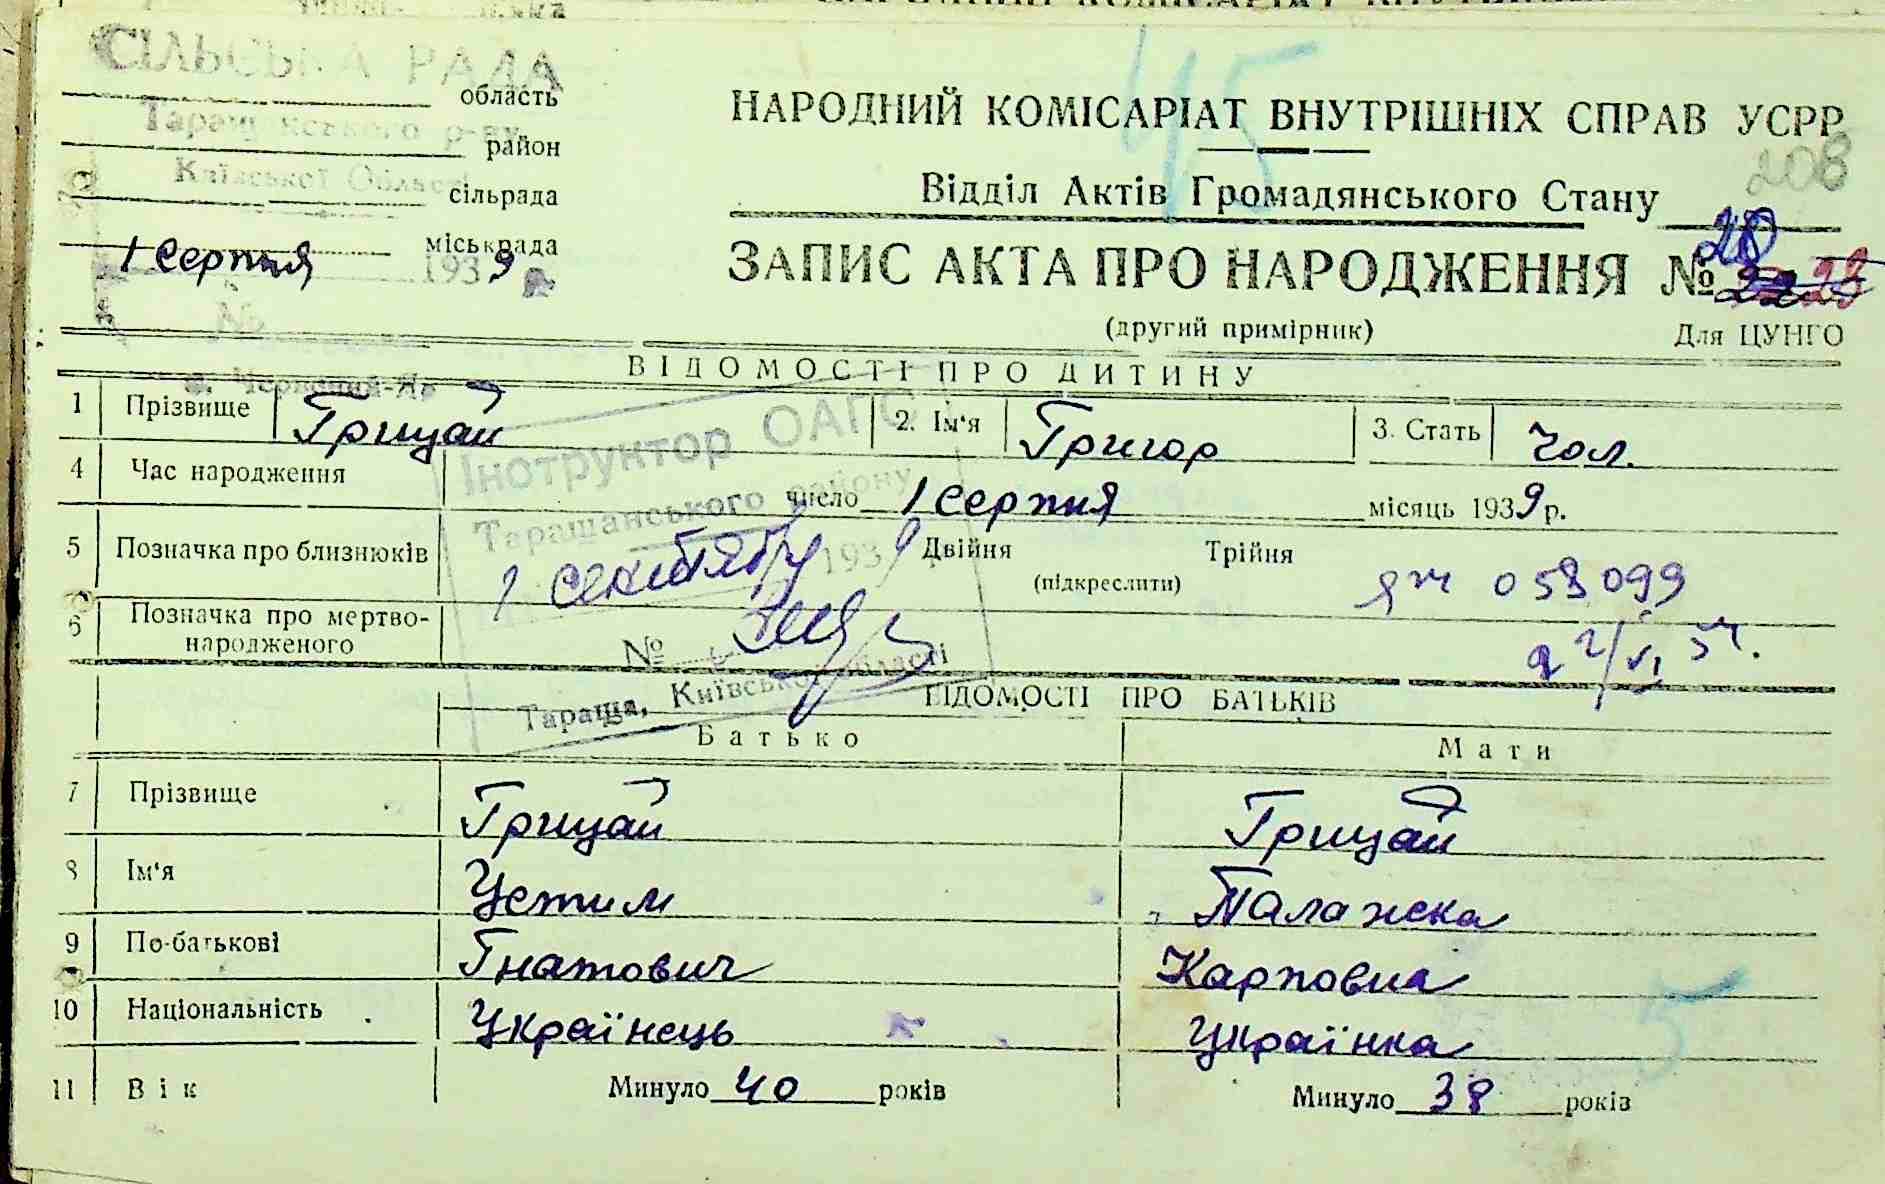 45
СІЛЬСЬКА РАДА
Таращанського р-ну
Київської Області
область
район
сільрада
міськрада
1 Серпня 1939 р.
№
с. Червоний-Яр
НАРОДНИЙ КОМІСАРІАТ ВНУТРІШНІХ СПРАВ УСРР
208
Відділ Актів Громадянського Стану
ЗАПИС АКТА ПРО НАРОДЖЕННЯ № 20 22 23
(другий примірник) Для ЦУНГО
ВІДОМОСТІ ПРО ДИТИНУ
1 Прізвище Грицай 2. Ім'я Григор 3. Стать Чол.
4 Час народження число 1 Серпня місяць 1939 р.
5 Позначка про близнюків Двійня Трійня
(підкреслити)
ЯЧ 058099
22/VI 54.
6 Позначка про мертво-
народженого
Інструктор ОАГС
Таращанського району
1 сентября 1939
№
Тараща, Київської області
ВІДОМОСТІ ПРО БАТЬКІВ
Батько Мати
7 Прізвище Грицай Грицай
8 Ім'я Устим Палажка
9 По-батькові Гнатович Карповна
10 Національність Українець Українка
5
11 Вік Минуло 40 років Минуло 38 років